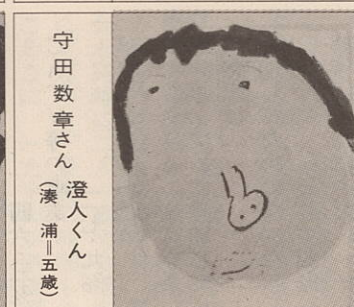 守田数章さん
澄人くん
(湊 浦=五歳)